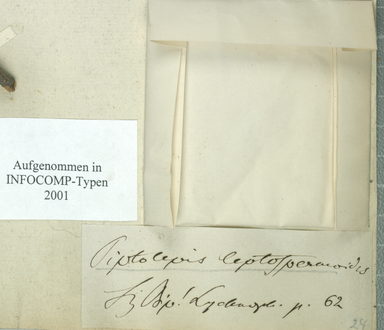 Aufgenommen in
INFOCOMP-Typen
2001
Piptolepis leptospermoides
Sz Bip! Lychnoph. p. 62